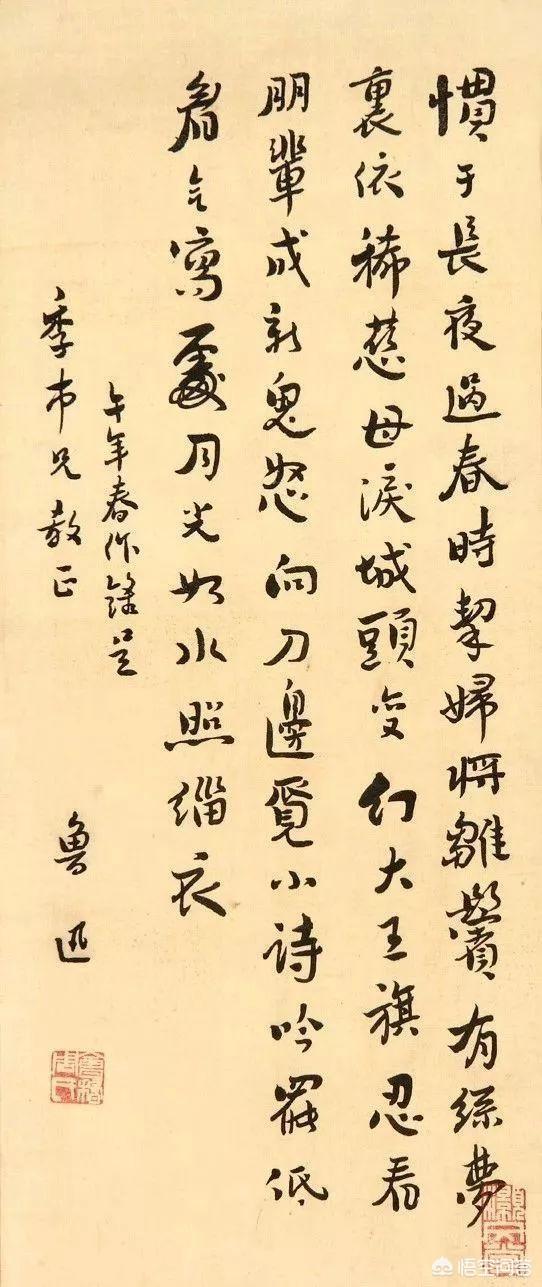 慣于長夜過春時挈婦將雛鬢有絲夢
裏依稀慈母淚城頭變幻大王旗忍看
朋輩成新鬼怒向刀邊覓小詩吟罷低
眉無寫處月光如水照緇衣
午年春作錄呈
季市兄教正
魯迅
悟空问答